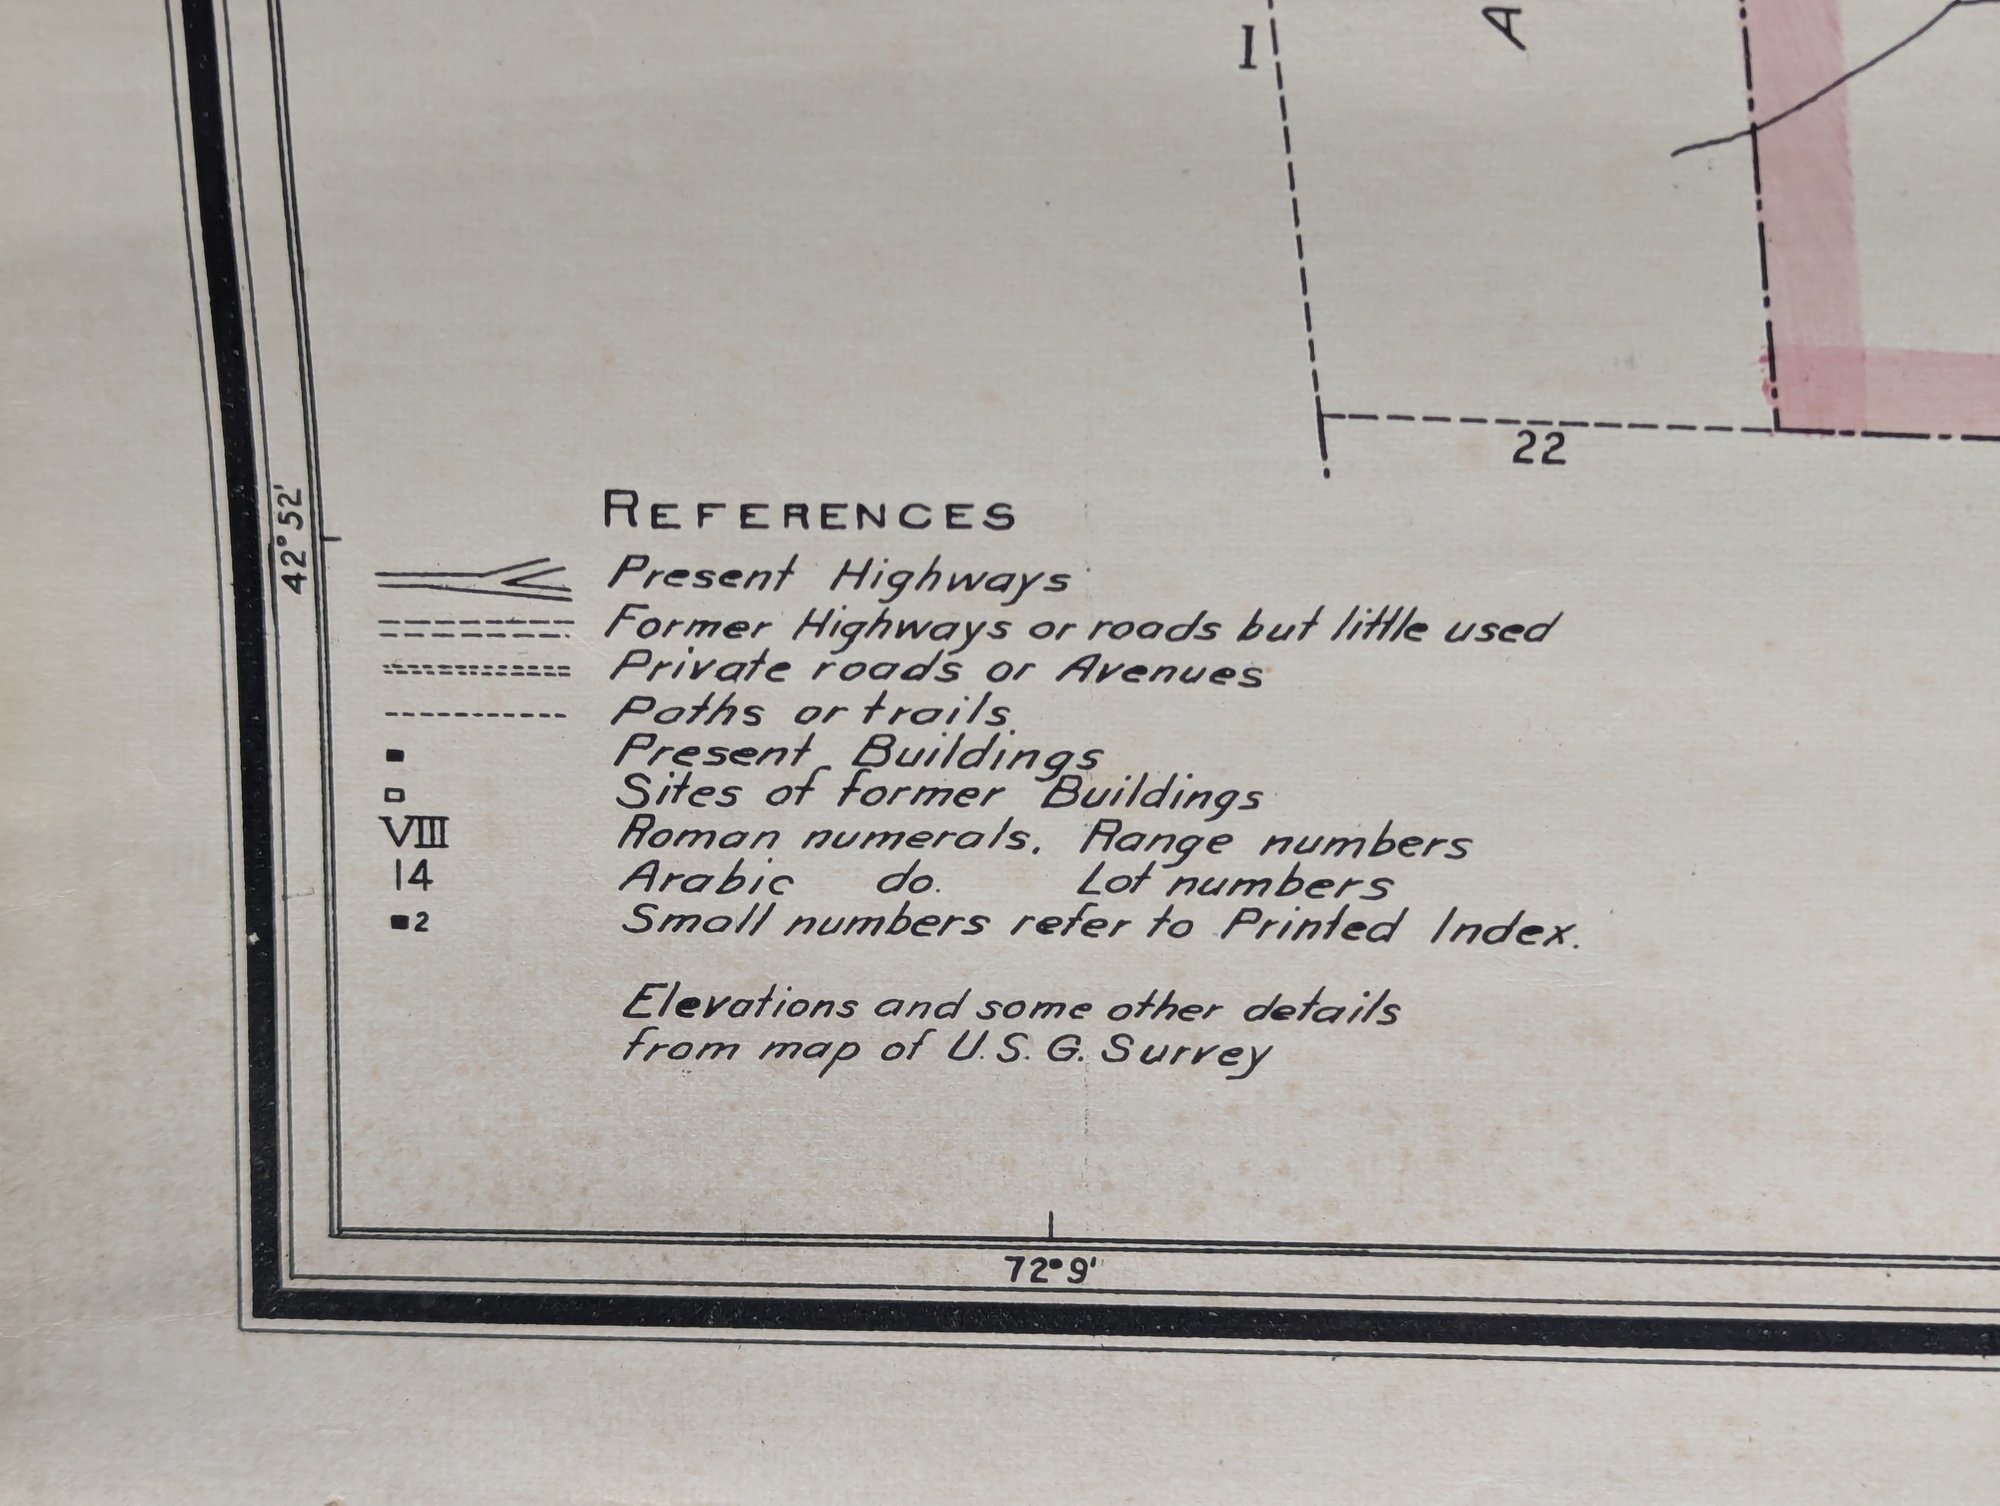 I
A
22
42° 52'
REFERENCES
Present Highways
Former Highways or roads but little used
Private roads or Avenues
Paths or trails
Present Buildings
Sites of former Buildings
VIII Roman numerals. Range numbers
14 Arabic do. Lot numbers
2 Small numbers refer to Printed Index.
Elevations and some other details
from map of U.S.G. Survey
72° 9'